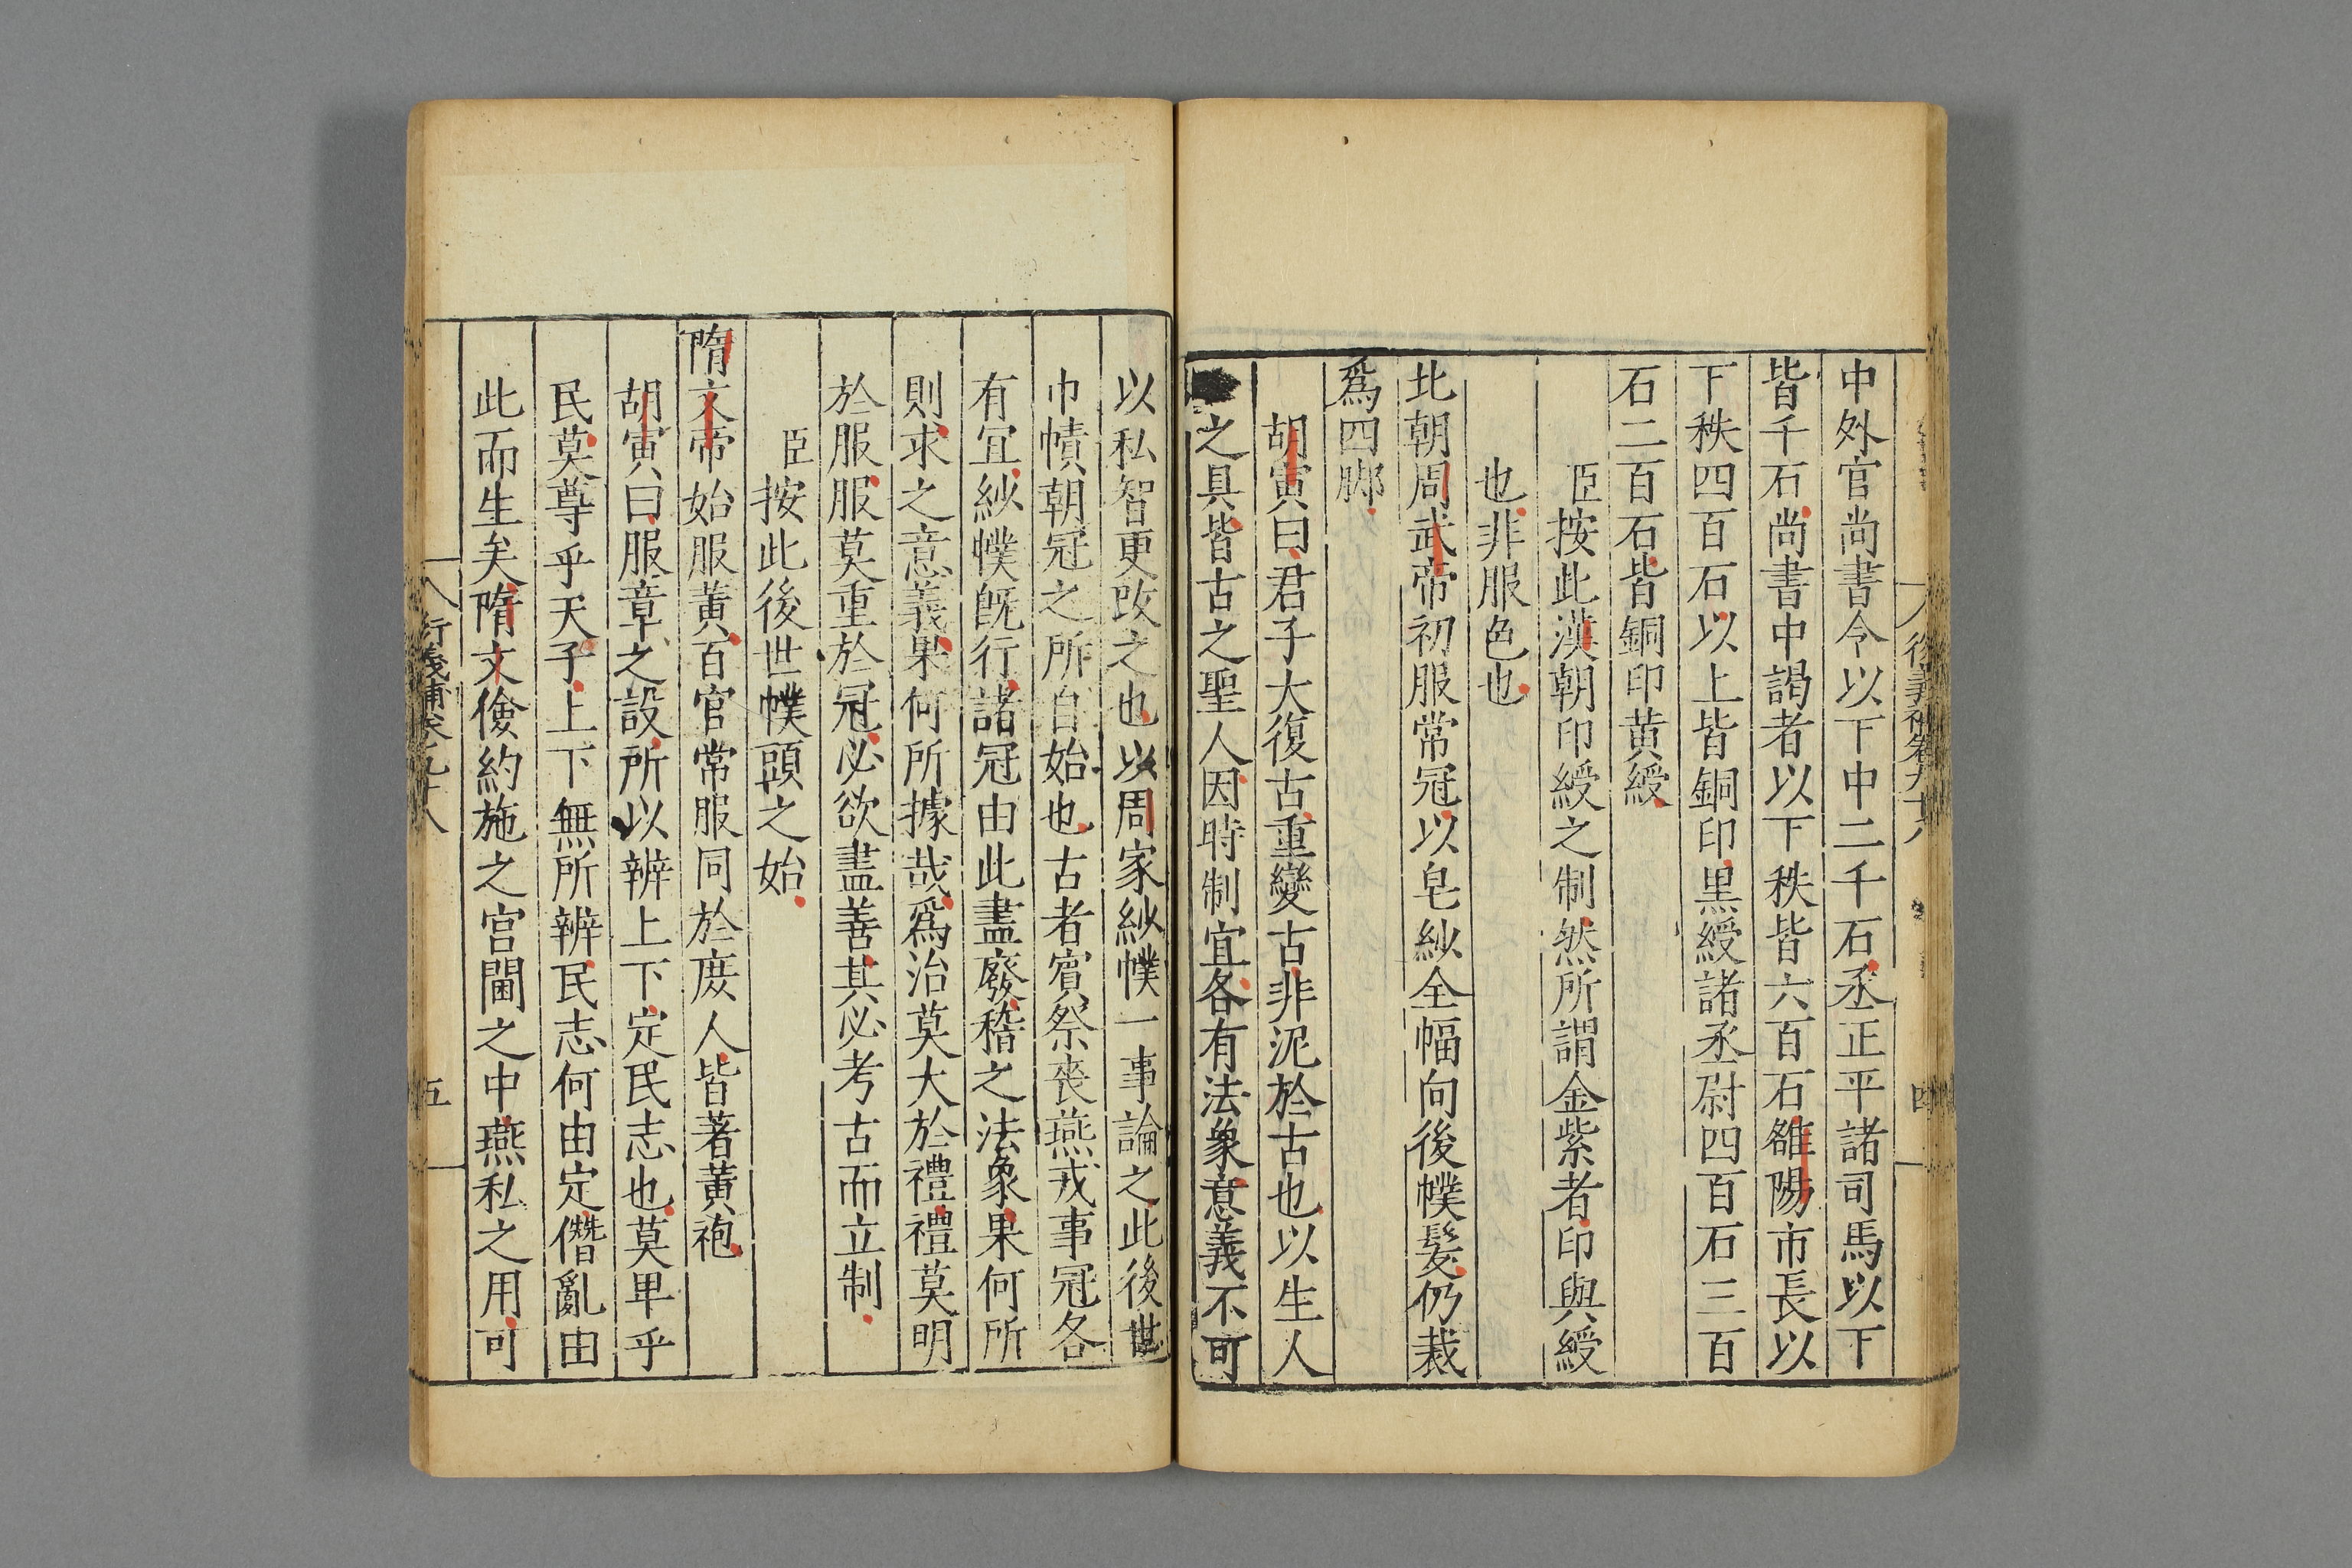 中外官尚書令以下中二千石丞正平諸司馬以下
皆千石尚書中謁者以下秩皆六百石雒陽市長以
下秩四百石以上皆銅印黒綬諸丞尉四百石三百
石二百石皆銅印黃綬
臣按此漢朝印綬之制然所謂金紫者印與綬
也非服色也
北朝周武帝初服常冠以皂紗全幅向後幞髮仍裁
爲四脚
胡寅曰君子大復古重變古非泥於古也以生人
之具皆古之聖人因時制宜各有法象意義不可
以私智更改之也以周家紗幞一事論之此後世
巾幘朝冠之所自始也古者賓祭喪燕戎事冠各
有宜紗幞既行諸冠由此盡廢稽之法象果何所
則求之意義果何所據哉爲治莫大於禮禮莫明
於服服莫重於冠必欲盡善其必考古而立制
臣按此後世幞頭之始
隋文帝始服黃百官常服同於庶人皆著黃袍
胡寅曰服章之設所以辨上下定民志也莫卑乎
民莫尊乎天子上下無所辨民志何由定僭亂由
此而生矣隋文儉約施之宮閫之中燕私之用可
衍義補卷九十八
五